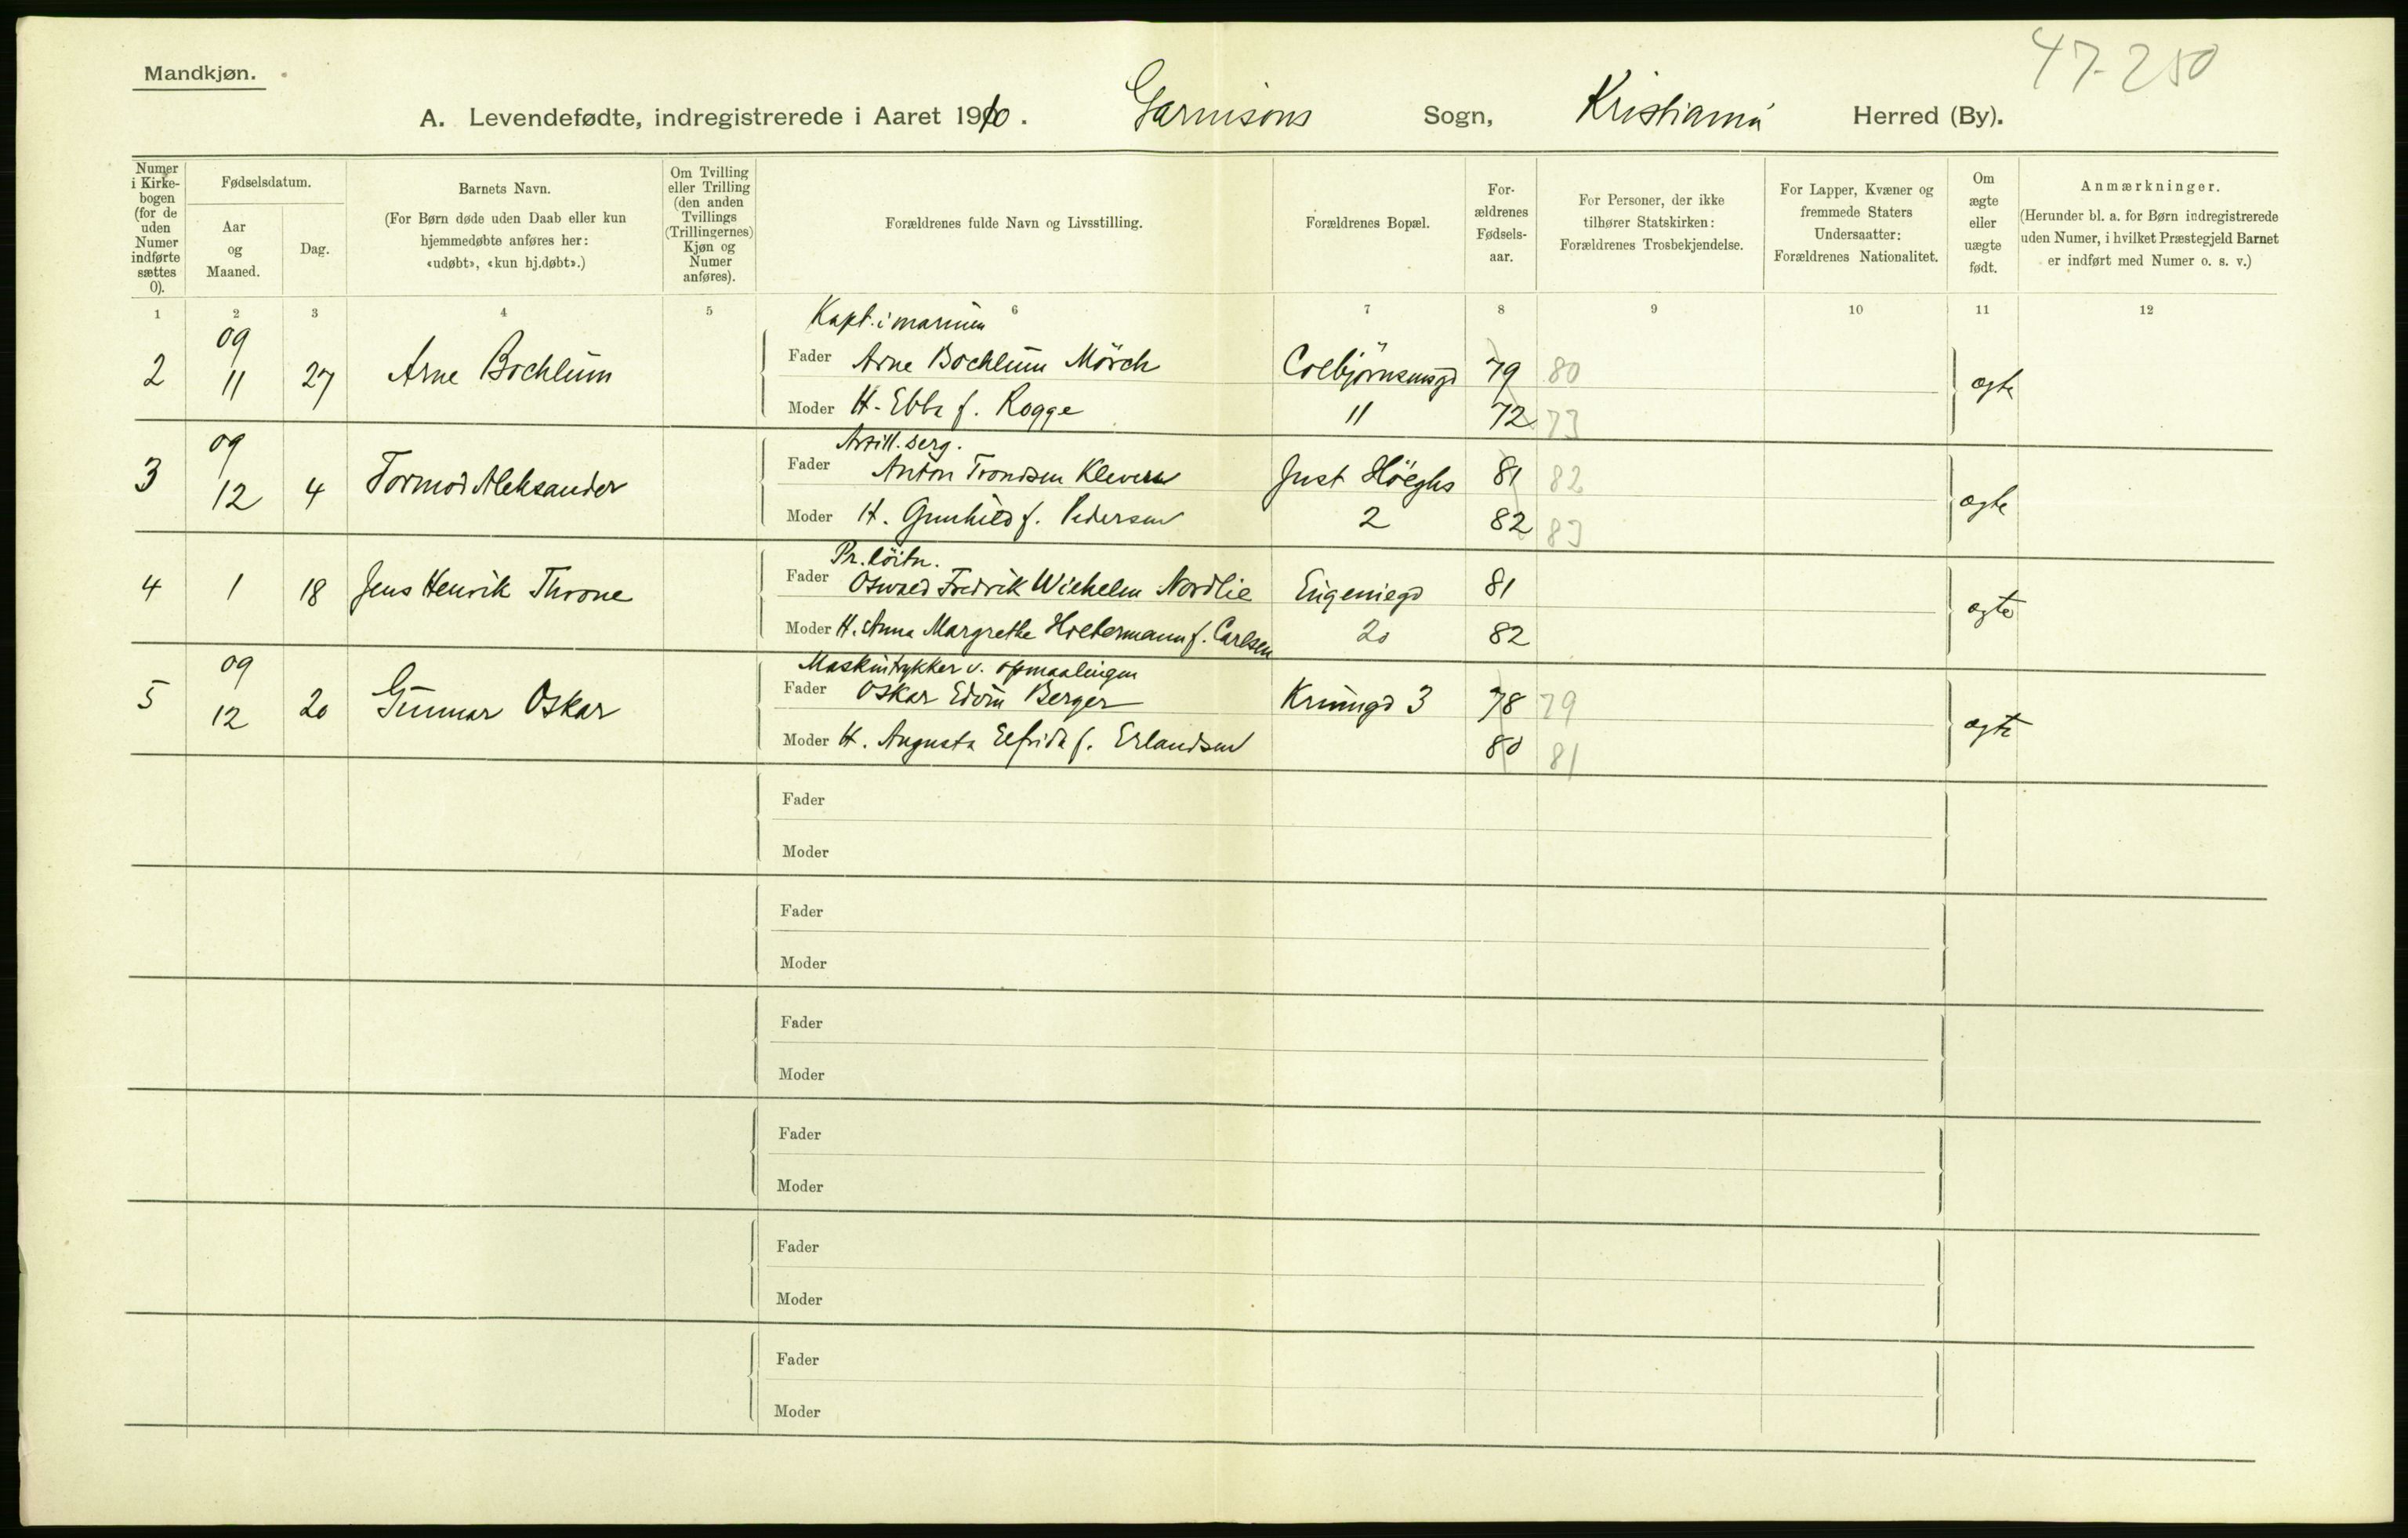 47-250
Mandkjøn.
A. Levendefødte, indregistrerede i Aaret 1910. Garnisons Sogn, Kristiania Herred (By).
Numer i Kirkebogen (for de uden Numer indførte sættes 0).
Fødselsdatum.
Aar og Maaned.
Dag.
Barnets Navn.
(For Børn døde uden Daab eller kun
hjemmedøbte anføres her:
«udøbt», «kun hj.døbt».)
Om Tvilling
eller Trilling
(den anden
Tvillings
(Trillingernes)
Kjøn og
Numer
anføres).
Forældrenes fulde Navn og Livsstilling.
Forældrenes Bopæl.
For-
ældrenes
Fødsels-
aar.
For Personer, der ikke
tilhører Statskirken:
Forældrenes Trosbekjendelse.
For Lapper, Kvæner og
fremmede Staters
Undersaatter:
Forældrenes Nationalitet.
Om
ægte
eller
uægte
født.
Anmærkninger.
(Herunder bl. a. for Børn indregistrerede
uden Numer, i hvilket Præstegjeld Barnet
er indført med Numer o. s. v.)
1 2 3 4 5 6 7 8 9 10 11 12
Kapt. i marinen
09
2 11 27 Arne Bochlum Fader Arne Bochlum Mörch Colbjörnsensgd 79 80 ægte
Moder H. Ebba f. Rogge 11 72 73
Artill. serg.
09
3 12 4 Tormod Aleksander Fader Anton Trondsen Kleveen Just Höeghs 81 82 ægte
Moder H. Gunhild f. Pedersen 2 82 83
Pr. löitn.
4 1 18 Jens Henrik Throne Fader Oswald Fredrik Wilhelm Nordlie Eugeniegd 81 ægte
Moder H. Anna Margrethe Holtermann f. Carlsen 20 82
Maskintrykker v. opmaalingen
09
5 12 20 Gunnar Oskar Fader Oskar Edvin Berger Krumgd 3 78 79 ægte
Moder H. Augusta Elfrida f. Erlandsen 80 81
Fader
Moder
Fader
Moder
Fader
Moder
Fader
Moder
Fader
Moder
Fader
Moder